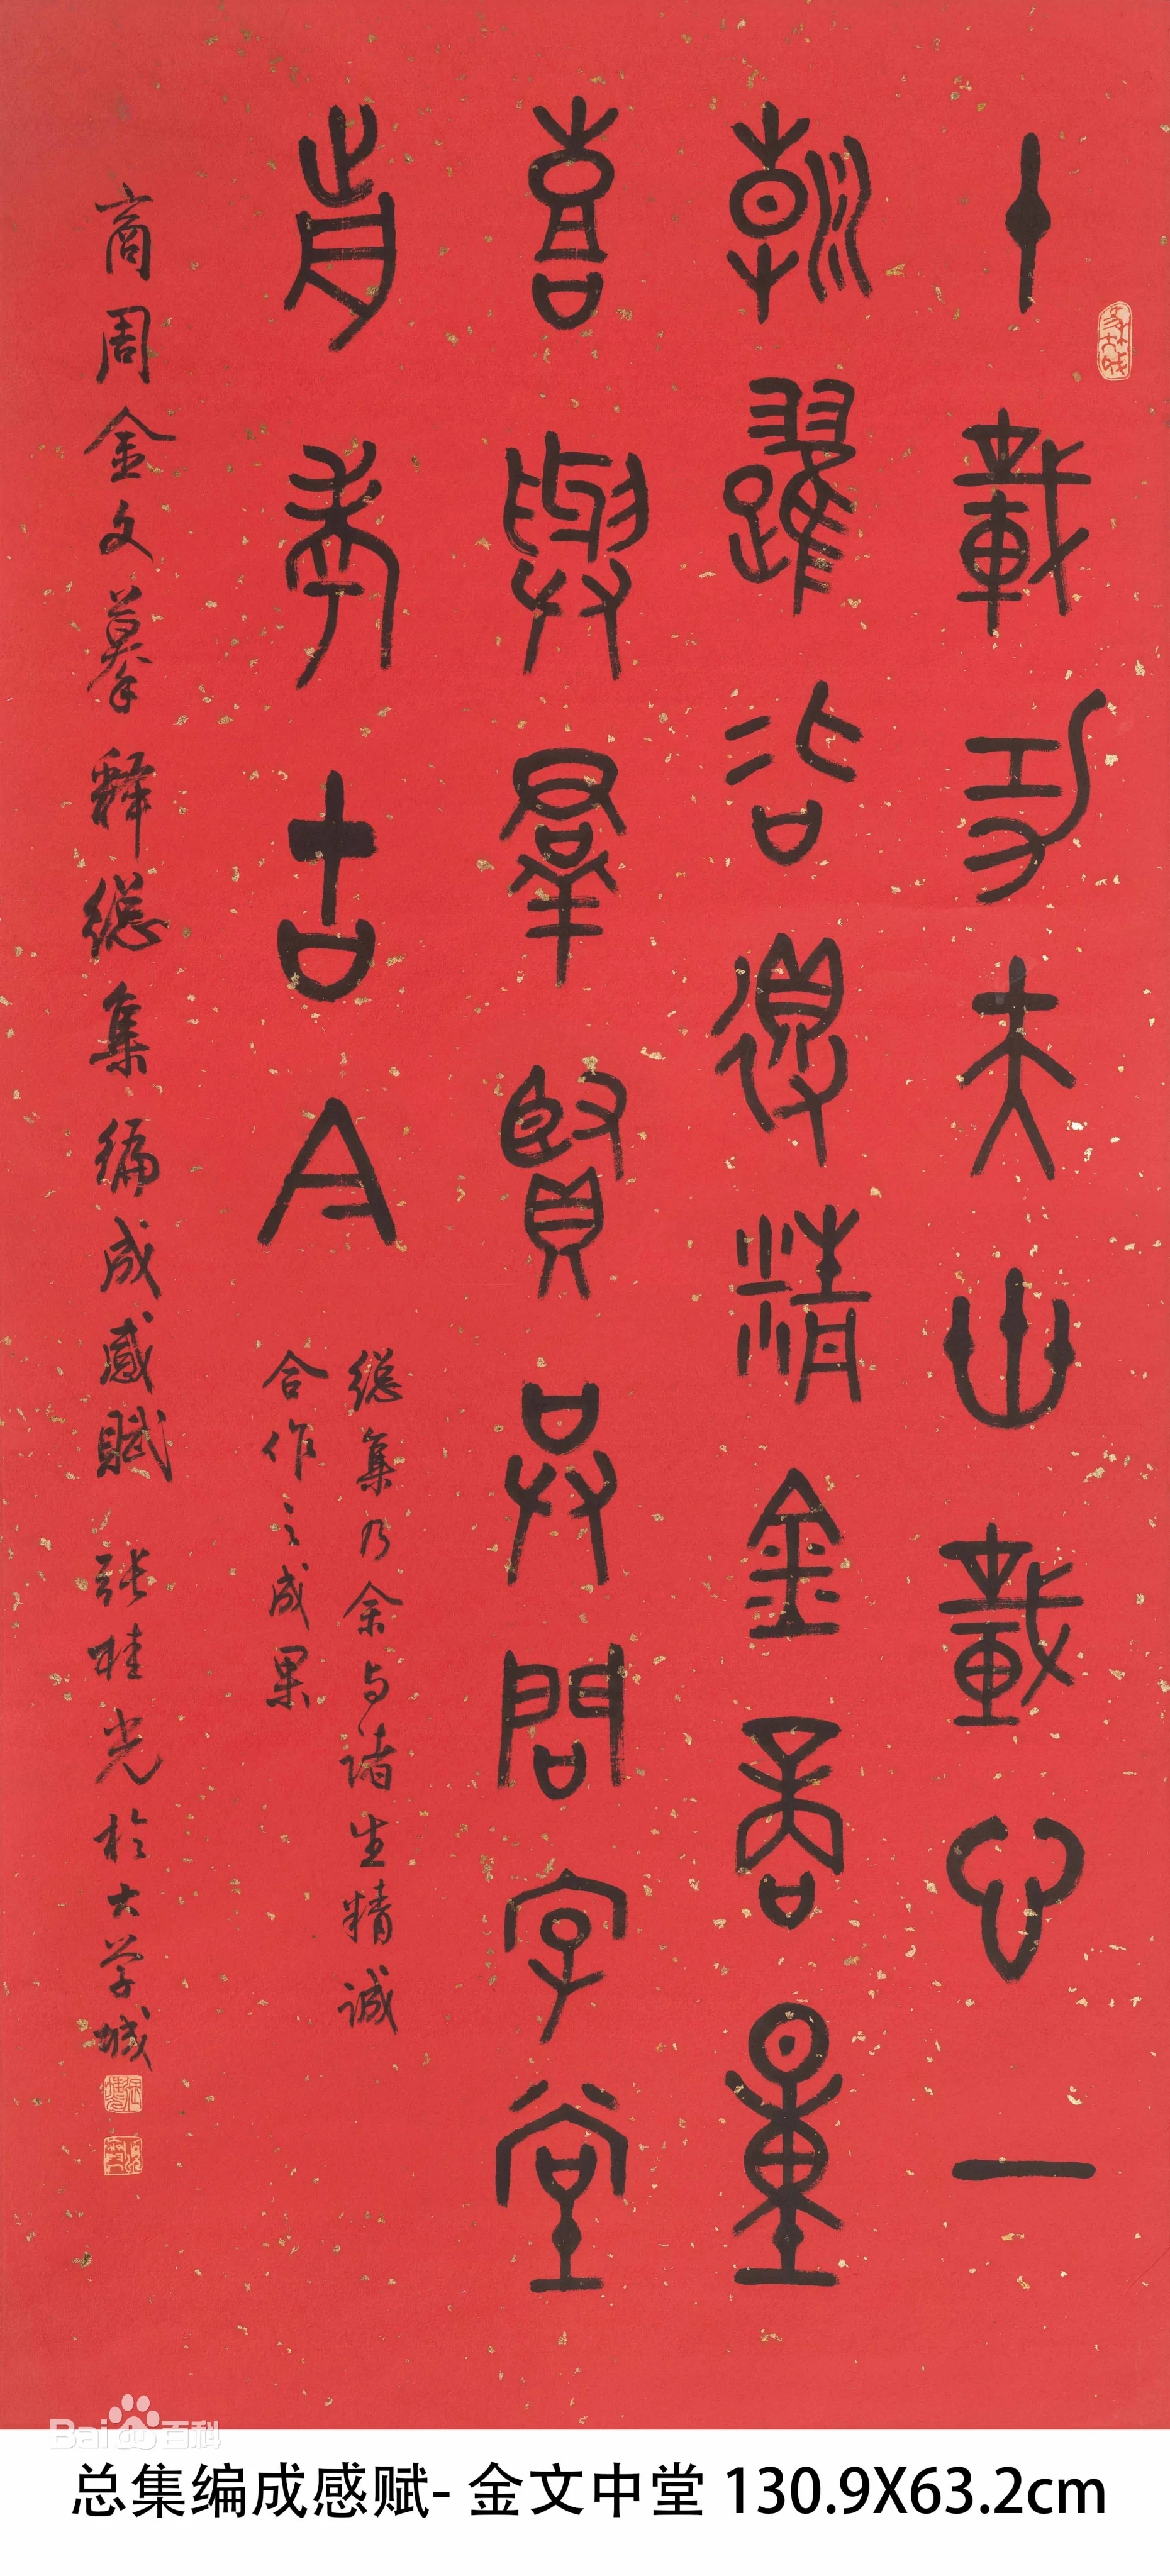 十載功夫卅載心一
朝躍冶得精金商量
喜與羣賢共問字堂
前秀古今
總集乃余与诸生精誠
合作之成果
商周金文摹釋總集編成感賦 張桂光於大学城
总集编成感赋- 金文中堂 130.9X63.2cm
Bai 百科